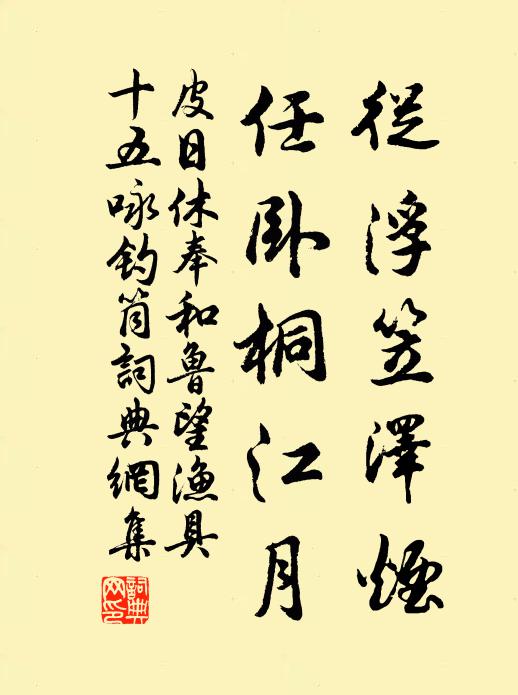 從浮笠澤煙
任臥桐江月
皮日休奉和魯望漁具
十五咏釣筒詞典網集
詞典
网印